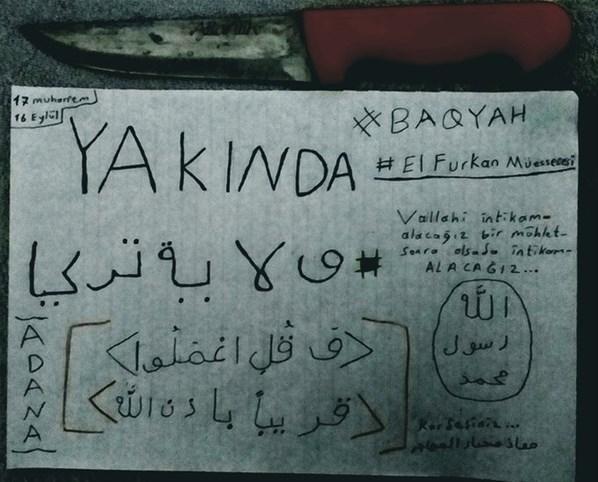 17 muharrem
16 Eylül
#BAQYAH
YAKINDA
# El Furkan Müessesesi
Vallahi intikam-
alacağız bir mühlet-
sonra olsada intikam-
ALACAĞIZ...
# ولاية تركيا
ADANA
<وَ قُلِ اعْمَلُوا>
<قريباً باذن الله>
الله
رسول
محمد
Kardeşiniz...